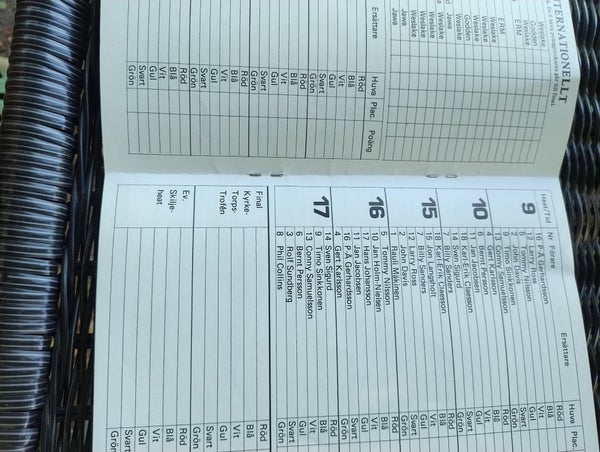 INTERNATIONELLT
Weslake
Godden
ERM
Weslake
Weslake
ERM
Weslake
Godden
Weslake
Weslake
Jawa
Weslake
Jawa
Ersättare Huva Plac. Poäng
Röd
Blå
Vit
Gul
Svart
Grön
Röd
Blå
Vit
Gul
Svart
Grön
Röd
Blå
Vit
Gul
Svart
Grön
Heat/Tid Nr Förare Ersättare Huva Plac.
9
16 P A Gerhardsson Röd
12 Larry Ross Blå
5 Tommy Nilsson Vit
Gul
Svart
Grön
10
4 Gert Karlsson Röd
13 Conny Samuelsson Blå
6 Bernt Persson Vit
11 Jan Jacobsen Gul
18 Karl Erik Claesson Svart
7 Billy Sanders Grön
15
14 Sven Sigurd Röd
18 Karl Erik Claesson Blå
15 Jon Langeholt Vit
7 Billy Sanders Gul
12 Larry Ross Svart
2 John Davis Grön
16
1 Rauli Mäkinen Röd
5 Tommy Nilsson Blå
10 Jan Holm-Nielsen Vit
17 Hans Johansson Gul
11 Jan Jacobsen Svart
16 P A Gerhardsson Grön
17
4 Gert Karlsson Röd
14 Sven Sigurd Blå
9 Timo Sinkkonen Vit
13 Conny Samuelsson Gul
6 Bernt Persson Svart
3 Rolf Sundberg Grön
8 Phil Collins
Final
Kyrke-
Torps-
Trofén
Röd
Blå
Vit
Gul
Svart
Grön
Ev.
Skilje-
heat
Röd
Blå
Vit
Gul
Svart
Grön